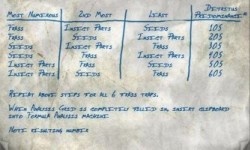 Most Numerous 2nd Most Least Detritus Predominance
Frass Insect Parts Seeds 10S
Frass Seeds Insect Parts 20S
Seeds Insect Parts Frass 30S
Seeds Frass Insect Parts 40S
Insect Parts Frass Seeds 50S
Insect Parts Seeds Frass 60S
Repeat above steps for all 6 frass traps.
When Analysis Grid is completely filled in, insert clipboard
into Formula Analysis machine.
Note resulting number